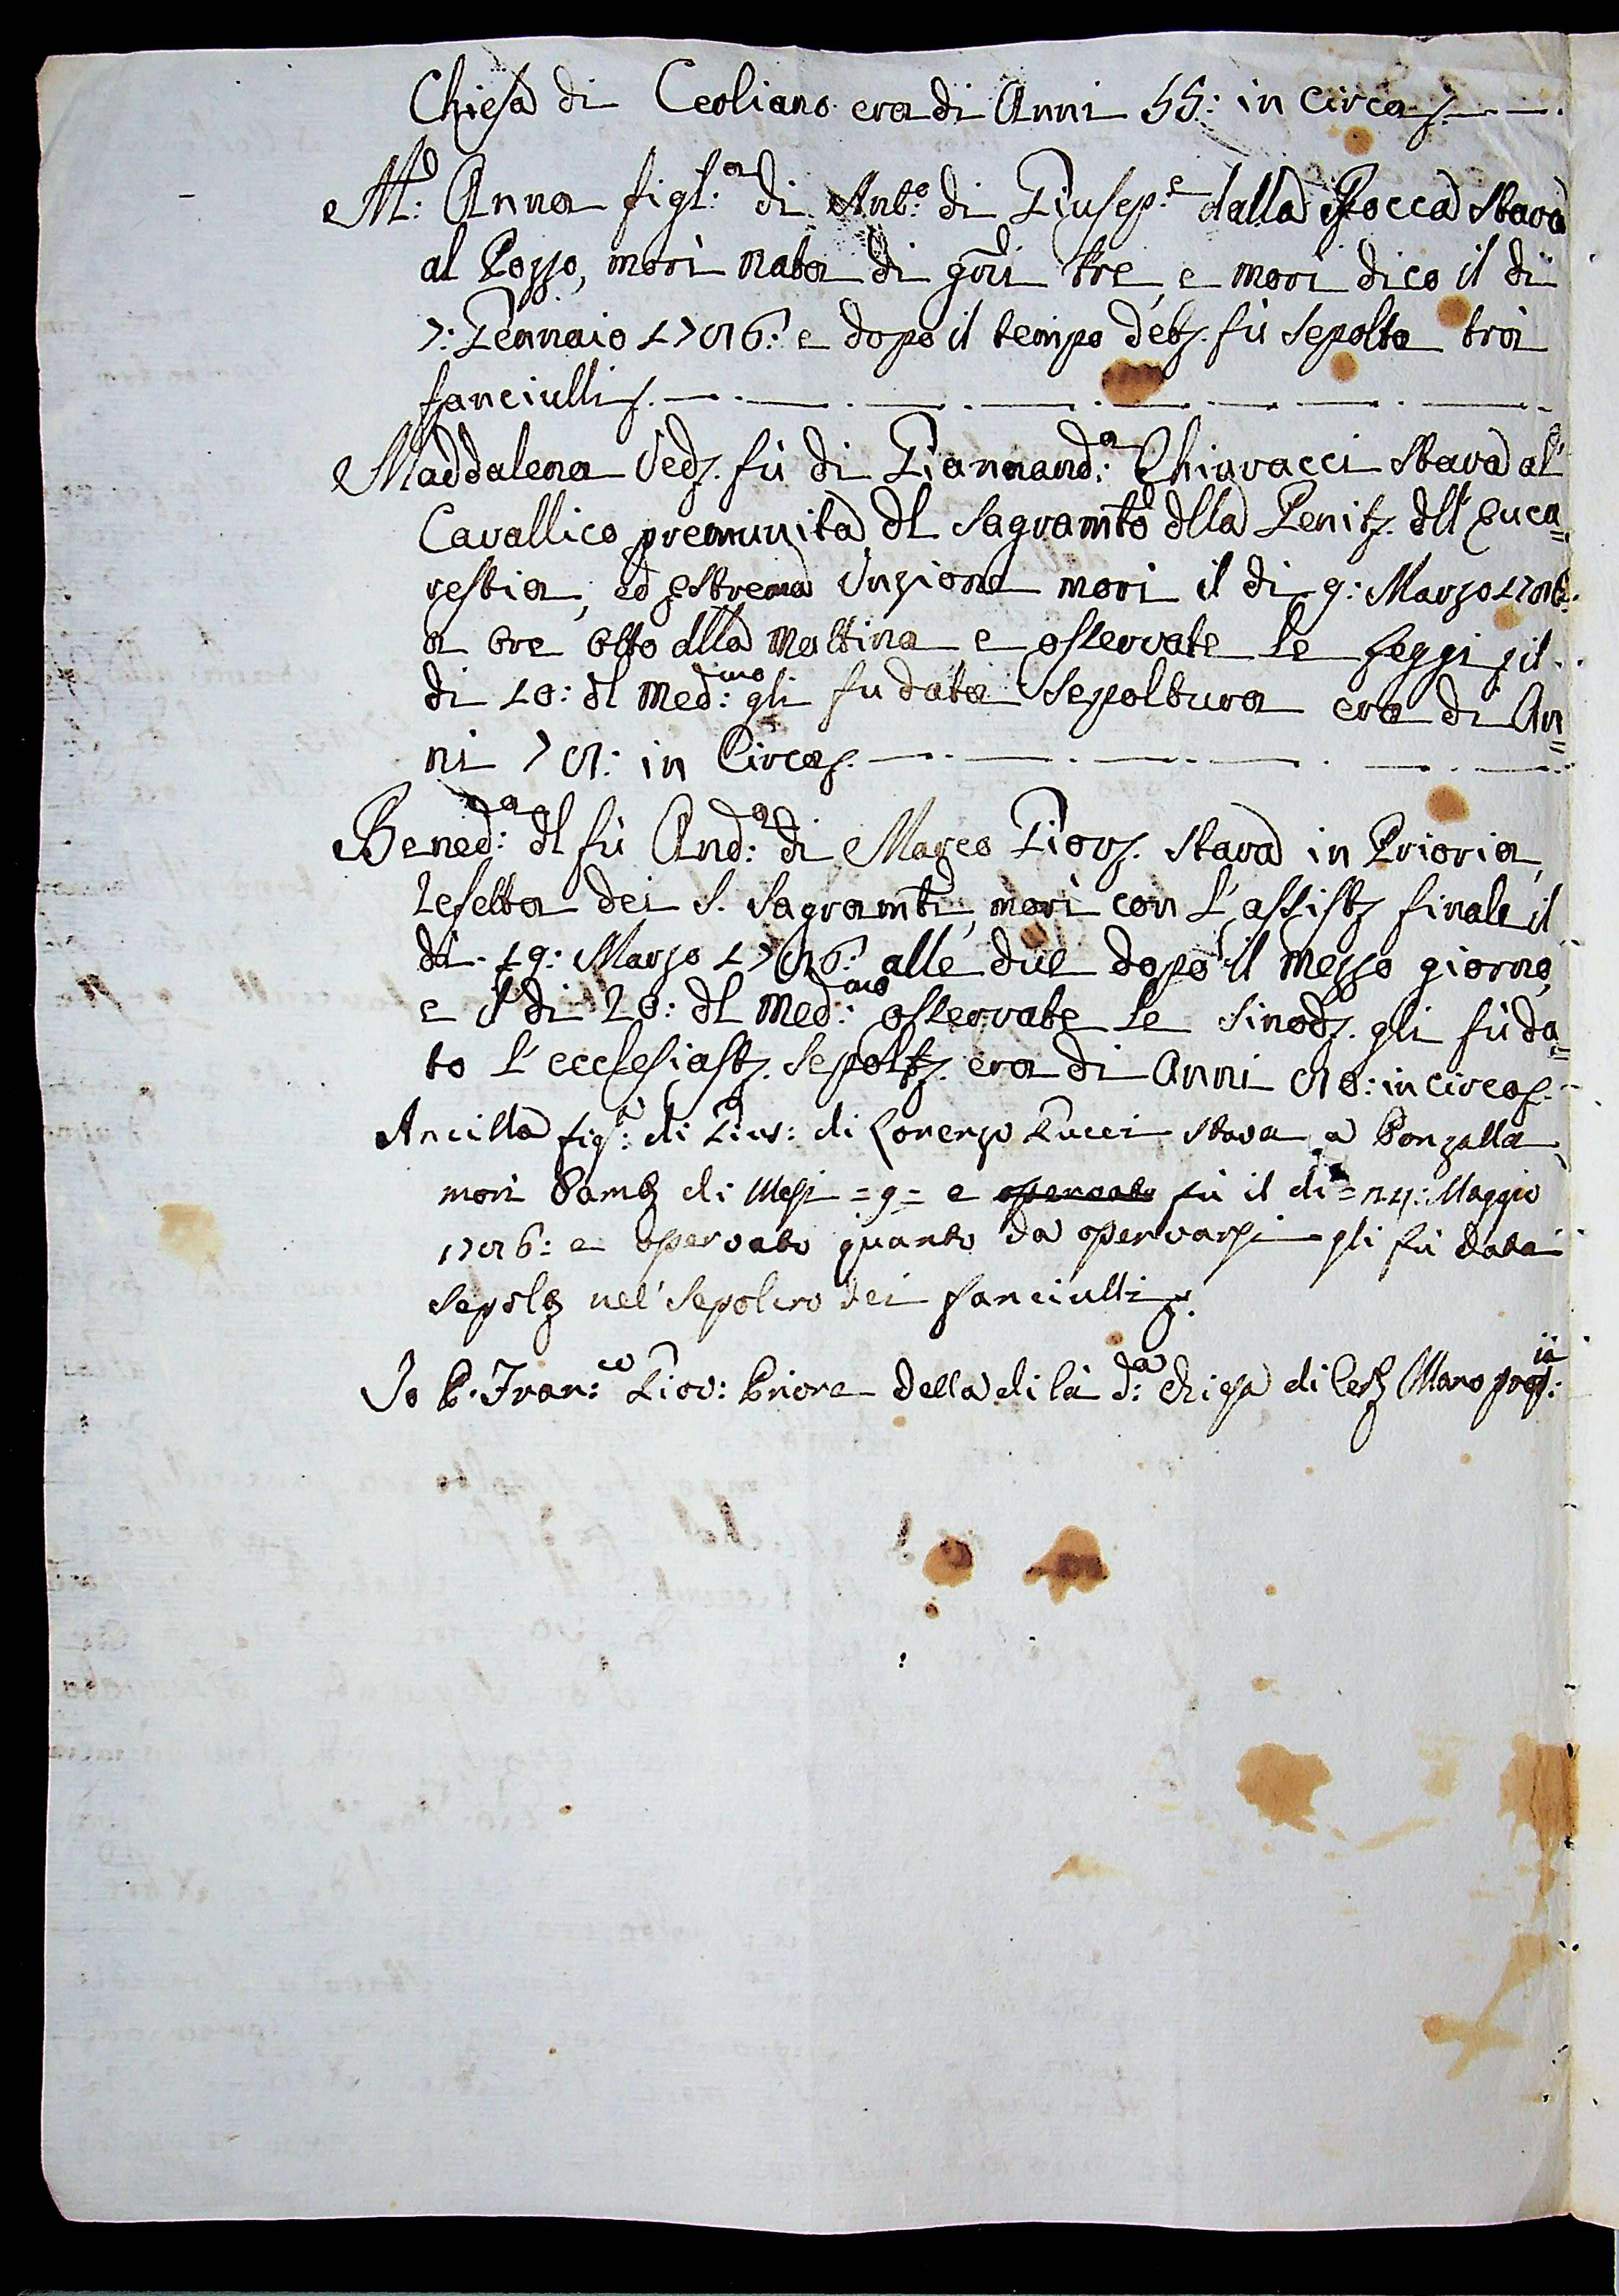 Chiesa di Ceoliano era di Anni 55: in circa
M.ª Anna figl:ª di Ant:º di Giusep:e dalla Rocca stava
al Pozzo, morì nata di gñi tre, e morì dico il dì
7: Gennaio 1796: e dopo il tempo debz. fù sepolta trà
fanciulli
Maddalena Vedz. fù di Giannand:ª Chiavacci stava al
Cavallico premunita dl Sagramto dlla Penitz. dll' Euca=
restia, ed estrema Unzione morì il di 9: Marzo 1796.
a ore otto dlla mattina e osservate le leggi il
di 10: dl med:imo gli fu data Sepoltura era di An=
ni 79: in Circa
Bened:ª dl fù And:ª di Marco Giorz. stava in Prioria,
refetta dei S. Sagramti, morì con l'assistz finale il
di 19: Marzo 1796: alle due dopo il mezzo giorno,
e il di 20: dl med:mo osservate le sinodz. gli fù da=
to l'ecclesiastz. sepoltz. era di Anni 90: in circa
Ancilla fig:ª di Gius: di Lorenzo Lucci stava a Ponzalla
morì Bambz di Mesi =9= e osservato fù il di = 24: Maggio
1796: e osservato quanto da osservarsi gli fù data
sepolz nel' sepolcro dei fanciulli
Io P. Fran:co Giov: Priore della di là d:ª chiesa di Mano prop:ia